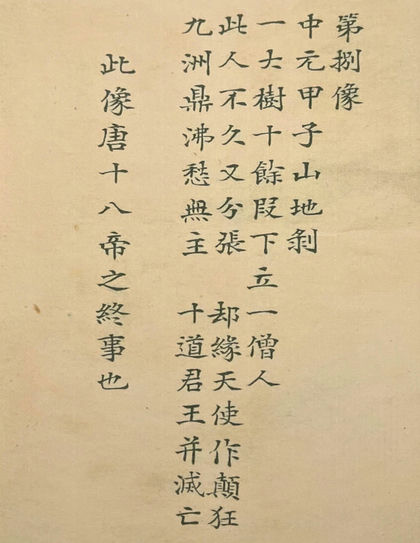 第捌像
中元甲子山地剝
一大樹十餘段下立一僧人
此人不久又分張 却緣天使作顛狂
九洲鼎沸愁無主 十道君王并滅亡
此像唐十八帝之終事也